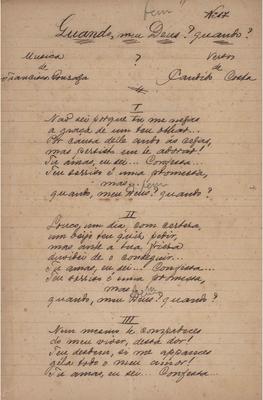 bem
Quando, meu Deus? quando?
Musica
?
Versos
de
de
Francisca Gonzaga
Candido Costa
I
Não sei porque tu me negas
a graça de um teu olhar...
Por causa delle ando ás cegas,
mas persisto em te adorar!
Tu amas, eu sei... Confessa...
Teu sorriso é uma promessa,
mas bem
quando, meu Deus? quando?
II
Louco, um dia, com certeza,
um beijo teu quiz pedir,
mas ante a tua
duvidei de o conseguir...
Tu amas, eu sei... Confessa...
Teu sorriso é uma promessa,
mas
quando, meu Deus? quando?
III
Nem mesmo te compadeces
do meu viver, dessa dor!
Teu desdem, só me appareces
gela todo o meu amor!
Tu amas, eu sei... Confessa...